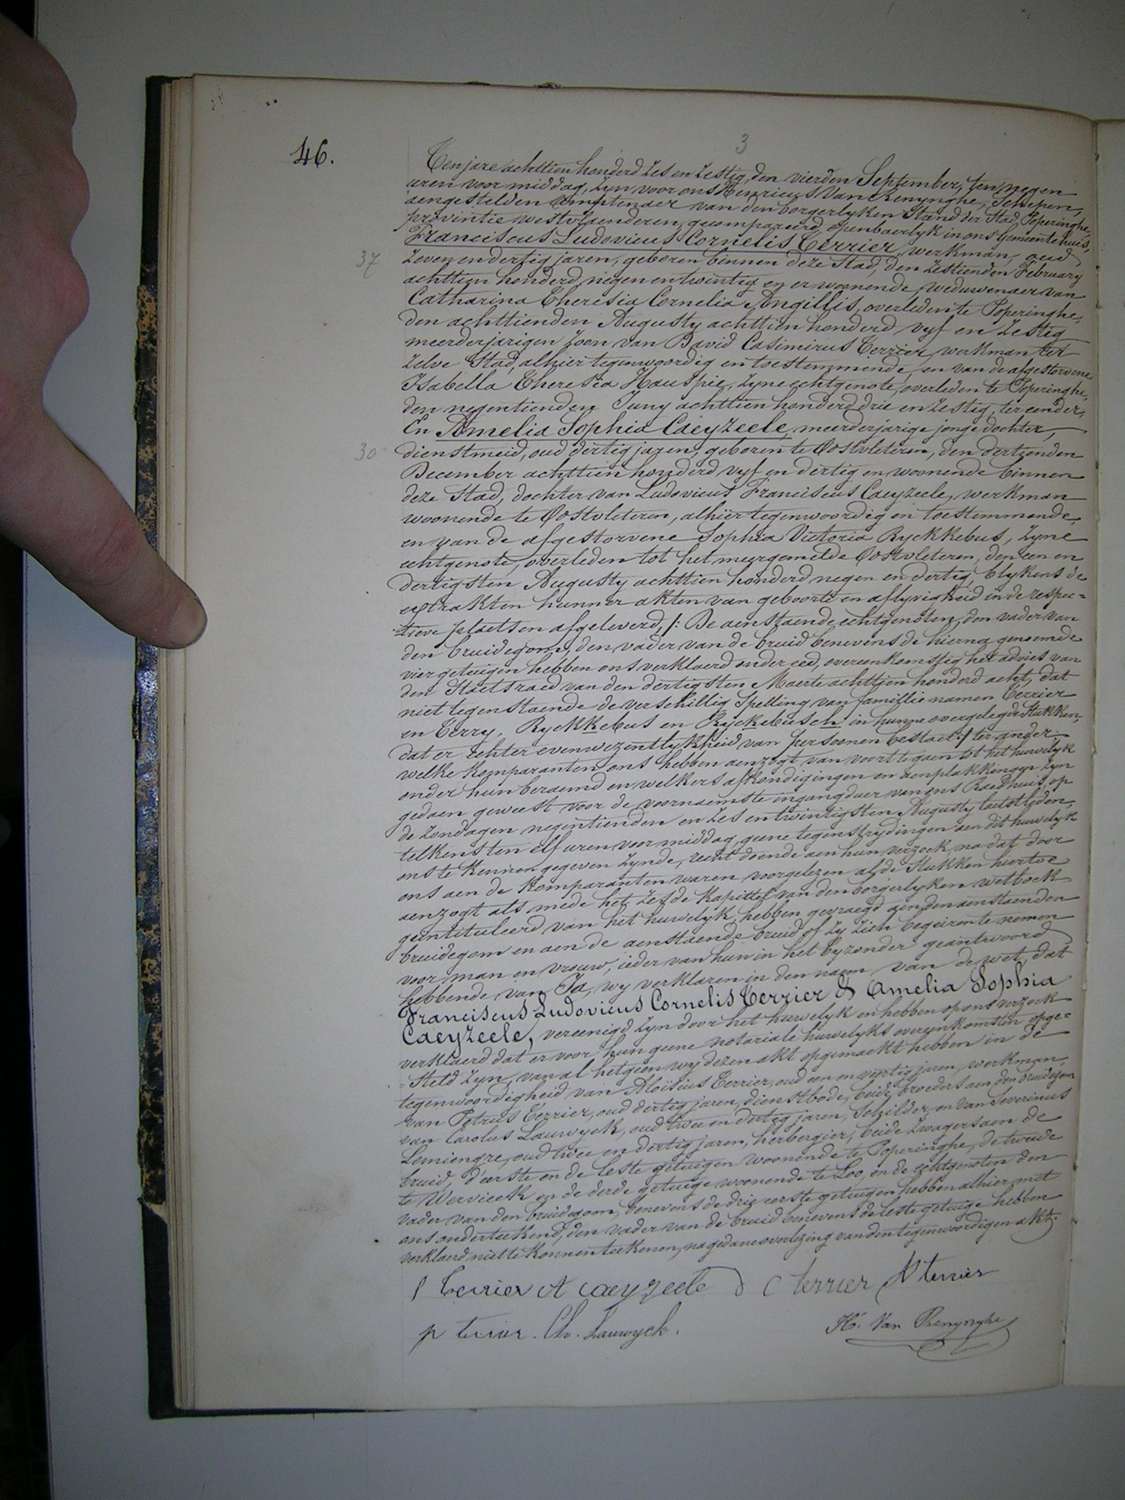 3
46.
Ten jare achttien honderd zes en zestig, den vierden September, ten negen
uren voor middag, zyn voor ons Henricus Van Renynghe, Schepen,
aengestelden amptenaer van den borgerlyken Stand der Stad Poperinghe,
provintie westvlaenderen, gecompareerd openbaerlyk in ons Gemeentehuis,
Franciscus Ludovicus Cornelis Terrier, werkman, oud
37
zeven en dertig jaren, geboren binnen deze Stad, den zestienden February
achttien honderd negen en twintig en er woonende, weduwenaer van
Catharina Theresia Cornelia Angillis, overleden te Poperinghe,
den achttienden Augusty achttien honderd vyf en zestig
meerderjarigen zoon van David Casimirus Terrier, werkman ter
zelve Stad, alhier tegenwoordig en toestemmende, en van de afgestorvene
Isabella Theresia Hauspie, zyne echtgenote, overleden te Poperinghe,
den negentienden Juny achttien honderd drie en zestig, ter eender,
En Amelia Sophia Caeyzeele, meerderjarige jonge dochter,
30
dienstmeid, oud dertig jaren, geboren te Oostvleteren, den dertienden
December achttien honderd vyf en dertig en woonende binnen
deze Stad, dochter van Ludovicus Franciscus Caeyzeele, werkman
woonende te Oostvleteren, alhier tegenwoordig en toestemmende,
en van de afgestorvene Sophia Victoria Ryckkebus, zyne
echtgenote, overleden tot het meergemelde Oostvleteren, den een en
dertigsten Augusty achttien honderd negen en dertig, blykens de
extrakten hunner akten van geboorte en aflyvigheid in de respec-
tieve plaetsen afgeleverd /: De aenstaende echtgenoten, den vader van
den bruidegom, den vader van de bruid benevens de hierna genoemde
vier getuigen hebben ons verklaerd onder eed, overeenkomstig het advies van
den Staetsraed van den dertigsten Maerte achttien honderd acht, dat
niet tegenstaende de verschillig Spelling van familie namen Terrier
en Terry, Ryckkebus en Ryckebusch in hunne overgelegde Stukken,
dat er echter evenwezentlykheid van persoonen bestaet :/ ter ander
welke komparanten ons hebben aenzogt van voort te gaen tot het huwelyk
onder hun beraemd en welkers afkondigingen en aenplakkingen zyn
gedaen geweest voor de voornaemste ingangdeur van ons Raedhuis, op
de zondagen negentienden en zes en twintigsten Augusty laetstleden,
telkens ten elf uren voor middag, geene tegenstrydingen aen dit huwelyk
ons te kennen gegeven zynde, recht doende aen hun verzoek, na dat door
ons aen de komparanten waren voorgelezen al de Stukken hiertoe
aenzogt als mede het zesde kapittel van den borgerlyken wetboek
geintituleerd van het huwelyk, hebben gevraegd aen den aenstaenden
bruidegom en aen de aenstaende bruid of zy zich begeiren te nemen
voor man en vrouw, ieder van hun in het byzonder geantwoord
hebbende van Ja, wy verklaren in den naem van de wet, dat
Franciscus Ludovicus Cornelis Terrier & Amelia Sophia
Caeyzeele, vereenigd zyn door het huwelyk en hebben op ons verzoek
verklaerd dat er voor hun geene notariale huwelyks overeenkomsten opge-
steld zyn, van al hetgeen wy dezen akt opgemaekt hebben in de
tegenwoordigheid van Aloïsius Terrier, oud een en veertig jaren, werkman,
van Petrus Terrier, oud dertig jaren, dienstbode, beide broeders aen den bruidegom
van Carolus Lauwyck, oud twee en dertig jaren, Schilder, en van Severinus
oud twee en dertig jaren, herbergier, beide zwagers aen de
bruid, d'eerste en de leste getuigen woonende te Poperinghe, de tweede
te Wervicck en de derde getuige woonende te Loo, en de echtgenoten, den
vader van den bruidegom, benevens de drie eerste getuigen hebben alhier met
ons onderteekend, den vader van de bruid benevens de leste getuige hebben
verklaerd niet te konnen teekenen, na gedane overlezing van den tegenwoordigen akt.
f Terrier A caeyzeele D C terrier A terrier
p terrier. Ch. Lauwyck. Ho. Van Renynghe